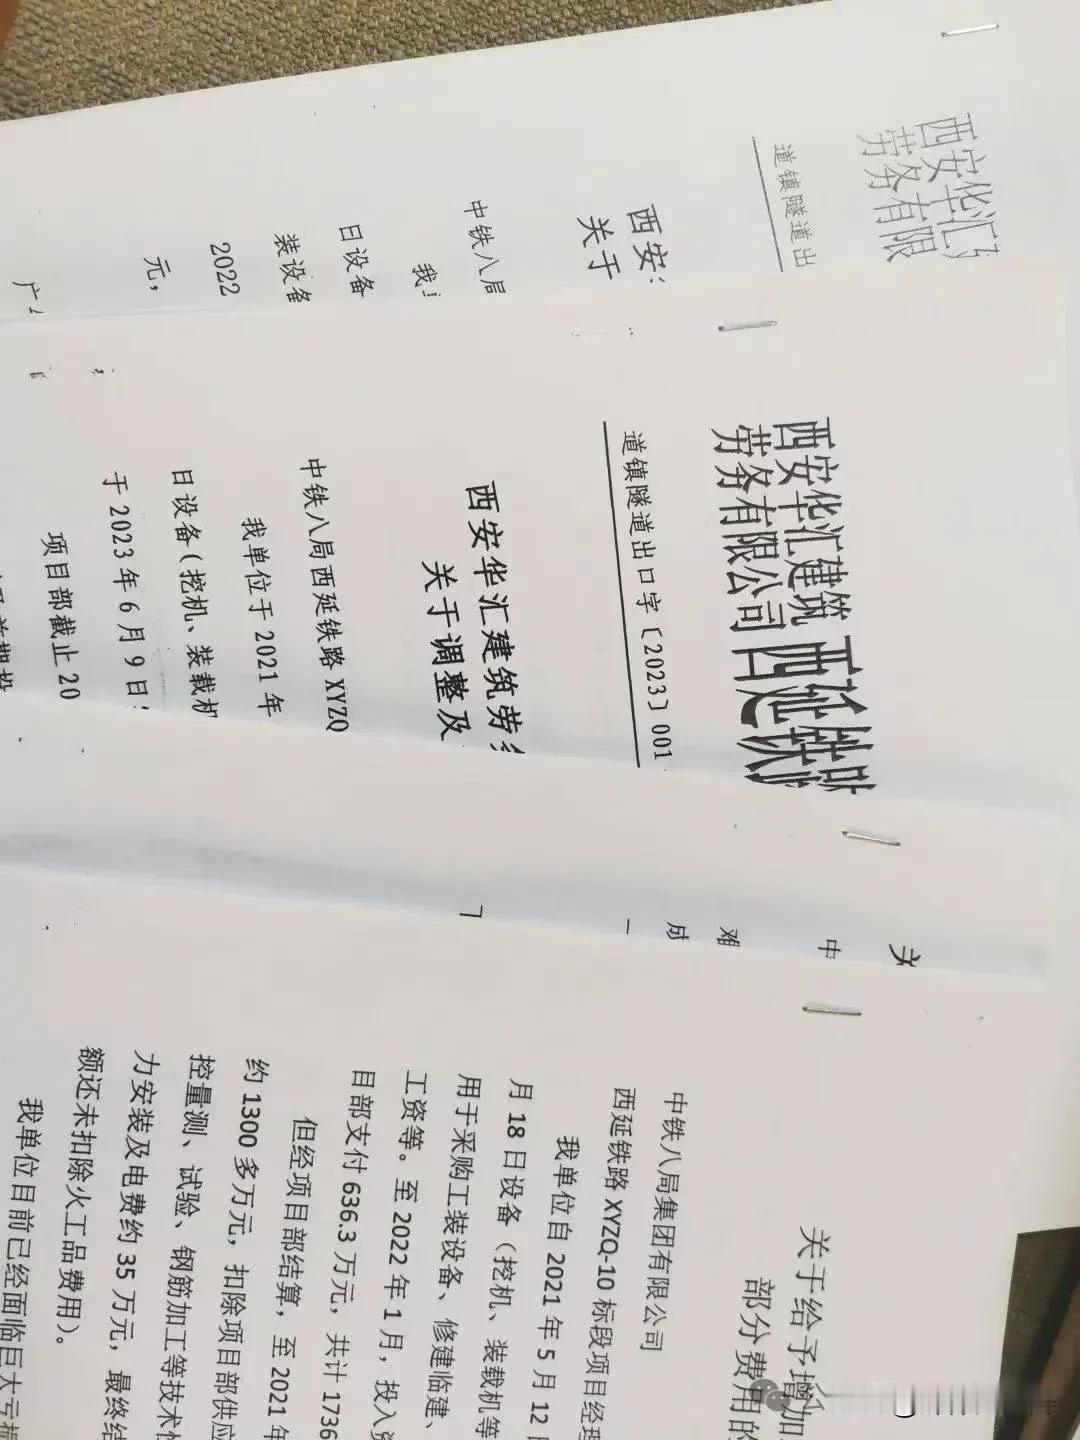 西安华汇
劳务有限
道镇隧道出
西安
关于
中铁八局
我
日设备
装设备
2022
元，
西安华汇建筑
劳务有限公司 西延铁路
道镇隧道出口字〔2023〕001
西安华汇建筑劳务
关于调整及
中铁八局西延铁路 XYZQ
我单位于 2021 年
日设备（挖机、装载机
于 2023 年 6 月 9 日
项目部截止 20
及前期投
关
中
难
成
关于给予增加
部分费用的
中铁八局集团有限公司
西延铁路 XYZQ-10 标段项目经理
我单位自 2021 年 5 月 12 日
月 18 日设备（挖机、装载机等
用于采购工装设备、修建临建、
工资等。至 2022 年 1 月，投入资
目部支付 636.3 万元，共计 1736
但经项目部结算，至 2021 年
约 1300 多万元，扣除项目部供应
控量测、试验、钢筋加工等技术性
力安装及电费约 35 万元，最终结
额还未扣除火工品费用）。
我单位目前已经面临巨大亏损